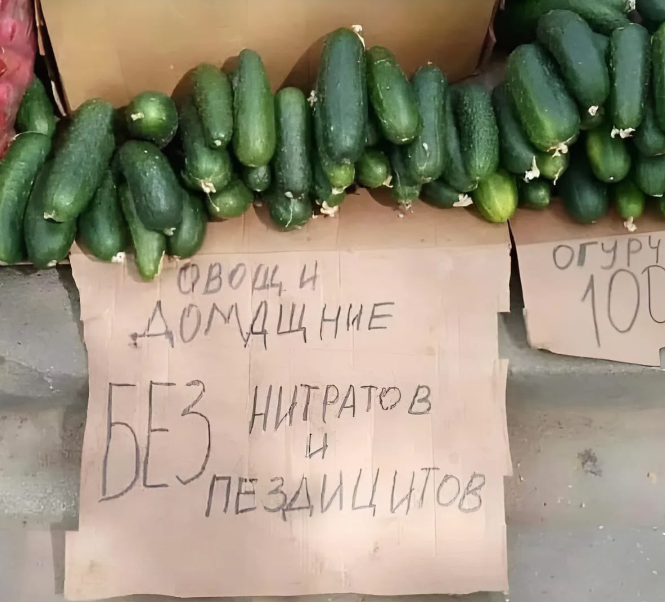 ОВОЩИ
ДОМАЩНИЕ
БЕЗ НИТРАТОВ
И
ПЕЗДИЦИТОВ
ОГУРЧ
100